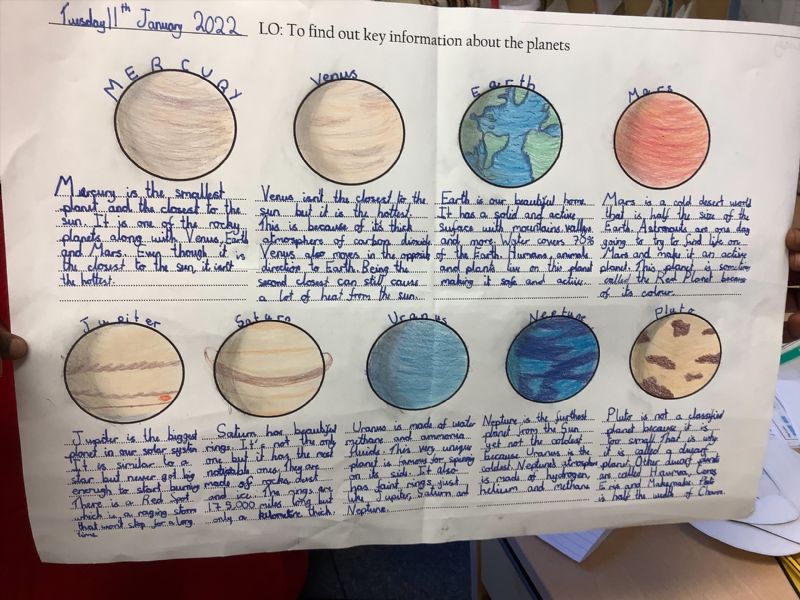 Tuesday 11th January 2022
LO: To find out key information about the planets
MERCURY
Mercury is the smallest
planet and the closest to the
sun. It is one of the rocky
planets along with Venus, Earth
and Mars. Even though it is
the closest to the sun, it isn't
the hottest.
Venus
Venus isn't the closest to the
sun but it is the hottest.
This is because of its thick
atmosphere of carbon dioxide.
Venus also moves in the opposite
direction to Earth. Being the
second closest can still cause
a lot of heat from the sun.
Earth
Earth is our beautiful home.
It has a solid and active
surface with mountains, valleys
and more. Water covers 70%
of the Earth. Humans, animals
and plants live on this planet
making it safe and active.
Mars
Mars is a cold desert world
that is half the size of the
Earth. Astronauts are one day
going to try to find life on
Mars and make it an active
planet. This planet is sometimes
called the Red Planet because
of its colour.
Jupiter
Jupiter is the biggest
planet in our solar system
It is similar to a
star but never got big
enough to start burning
There is a Red spot
which is a raging storm
that won't stop for a long
time.
Saturn
Saturn has beautiful
rings. It's not the only
one but it has the most
noticeable ones. They are
made of rocks, dust
and ice. The rings are
175,000 miles long but
only a kilometre thick.
Uranus
Uranus is made of water
methane and ammonia
fluids. This very unique
planet is famous for spinning
on its side. It also
has faint rings, just
like Jupiter, Saturn and
Neptune.
Neptune
Neptune is the furthest
planet from the Sun
yet not the coldest
because Uranus is the
coldest. Neptune's atmosphere
is made of hydrogen,
helium and methane
Pluto
Pluto is not a classified
planet because it is
too small. That is why
it is called a dwarf
planet. Other dwarf planets
are called Haumea, Ceres
Eris and Makemake. Pluto
is half the width of